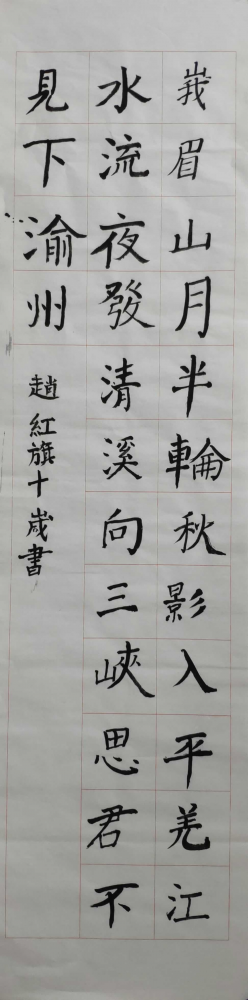 峩眉山月半輪秋影入平羌江
水流夜發清溪向三峽思君不
見下渝州
趙紅旗十歲書